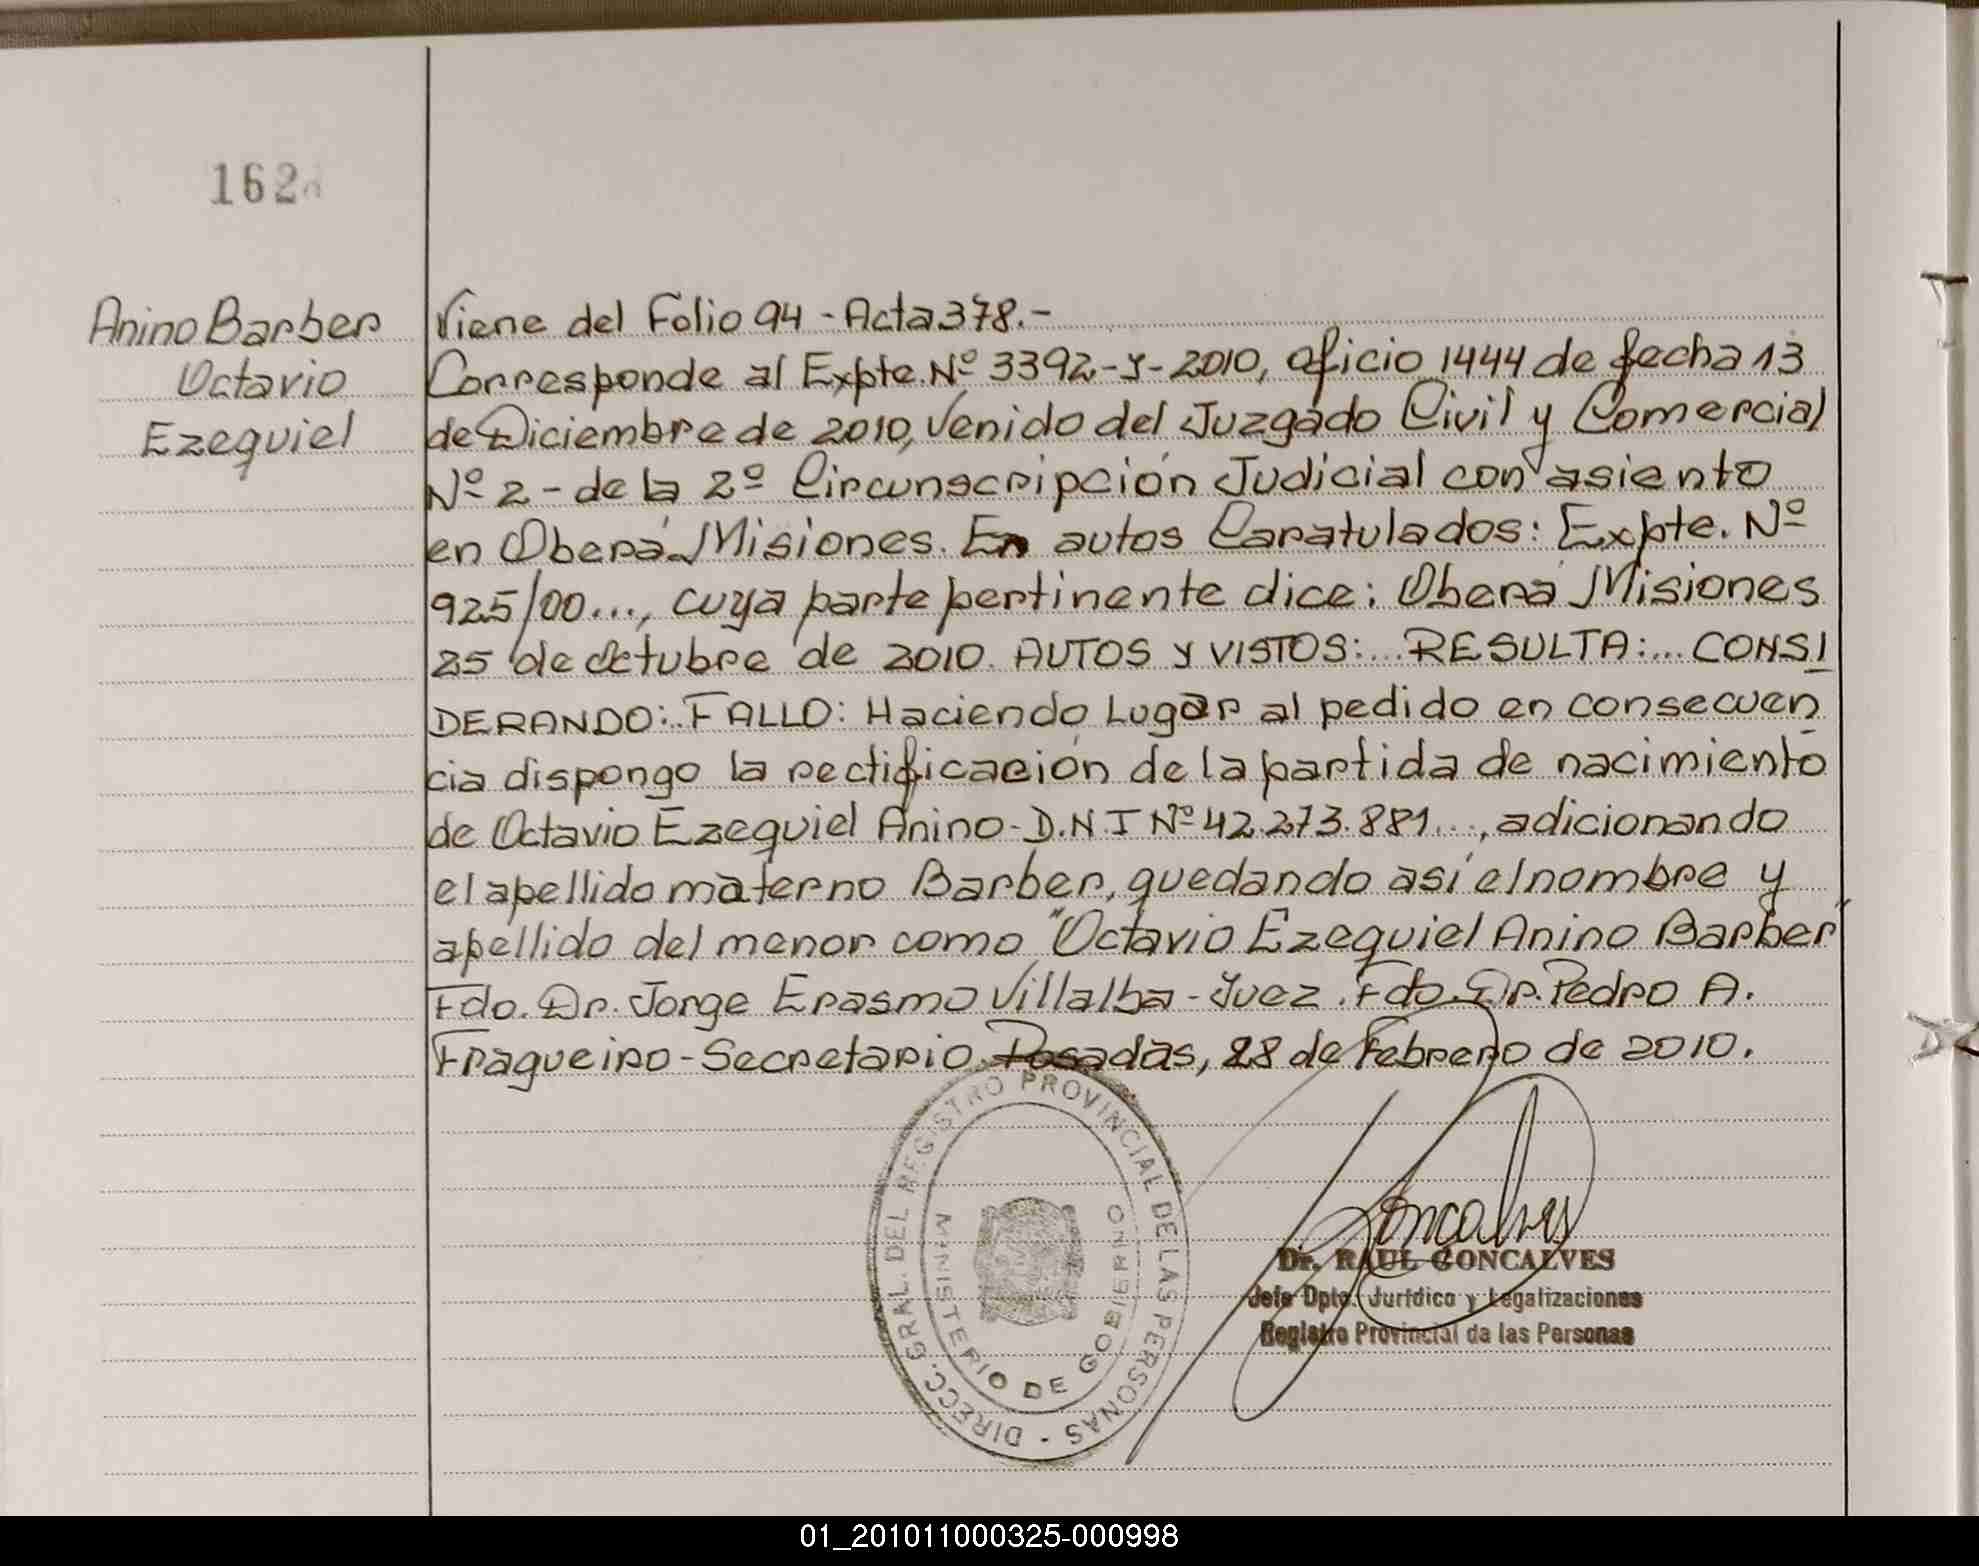 162
Anino Barber
Octavio
Ezequiel
Viene del Folio 94 - Acta 378.-
Corresponde al Expte. Nº 3392-Y-2010, oficio 1444 de fecha 13
de Diciembre de 2010, Venido del Juzgado Civil y Comercial
Nº 2 - de la 2º Circunscripción Judicial con asiento
en Oberá Misiones. En autos Caratulados: Expte. Nº
925/00..., cuya parte pertinente dice: Oberá Misiones
25 de Octubre de 2010. AUTOS Y VISTOS:... RESULTA:... CONSI
DERANDO:. FALLO: Haciendo Lugar al pedido en consecuen
cia dispongo la rectificación de la partida de nacimiento
de Octavio Ezequiel Anino - D.N.I Nº 42.273.881..., adicionando
el apellido materno Barber, quedando así el nombre y
apellido del menor como "Octavio Ezequiel Anino Barber"
Fdo. Dr. Jorge Erasmo Villalba - Juez. Fdo. Dr. Pedro A.
Fragueiro - Secretario. Posadas, 28 de Febrero de 2010.
DIRECC. GRAL. DEL REGISTRO PROVINCIAL DE LAS PERSONAS -
MINISTERIO DE GOBIERNO
Goncalves
Dr. RAUL GONCALVES
Jefe Dpto. Jurídico y Legalizaciones
Registro Provincial de las Personas
01_201011000325-000998